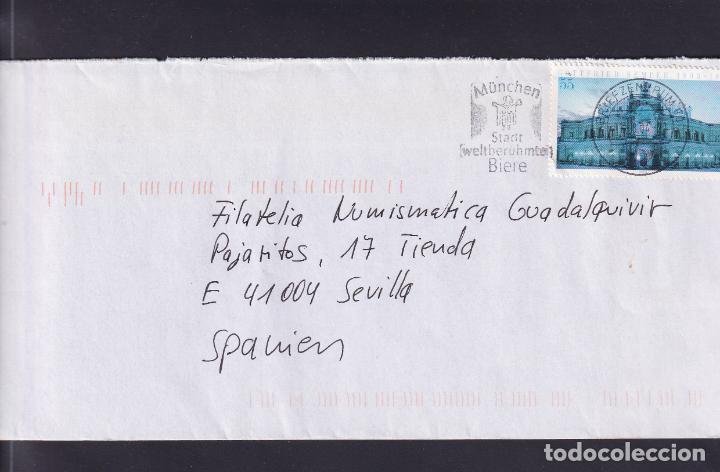 München
Stadt
weltberühmter
Biere
55
GOTTFRIED SEMPER
BRIEFZENTRUM
Filatelia Numismatica Guadalquivir
Pajaritos, 17 Tienda
E 41004 Sevilla
Spanien
todocoleccion